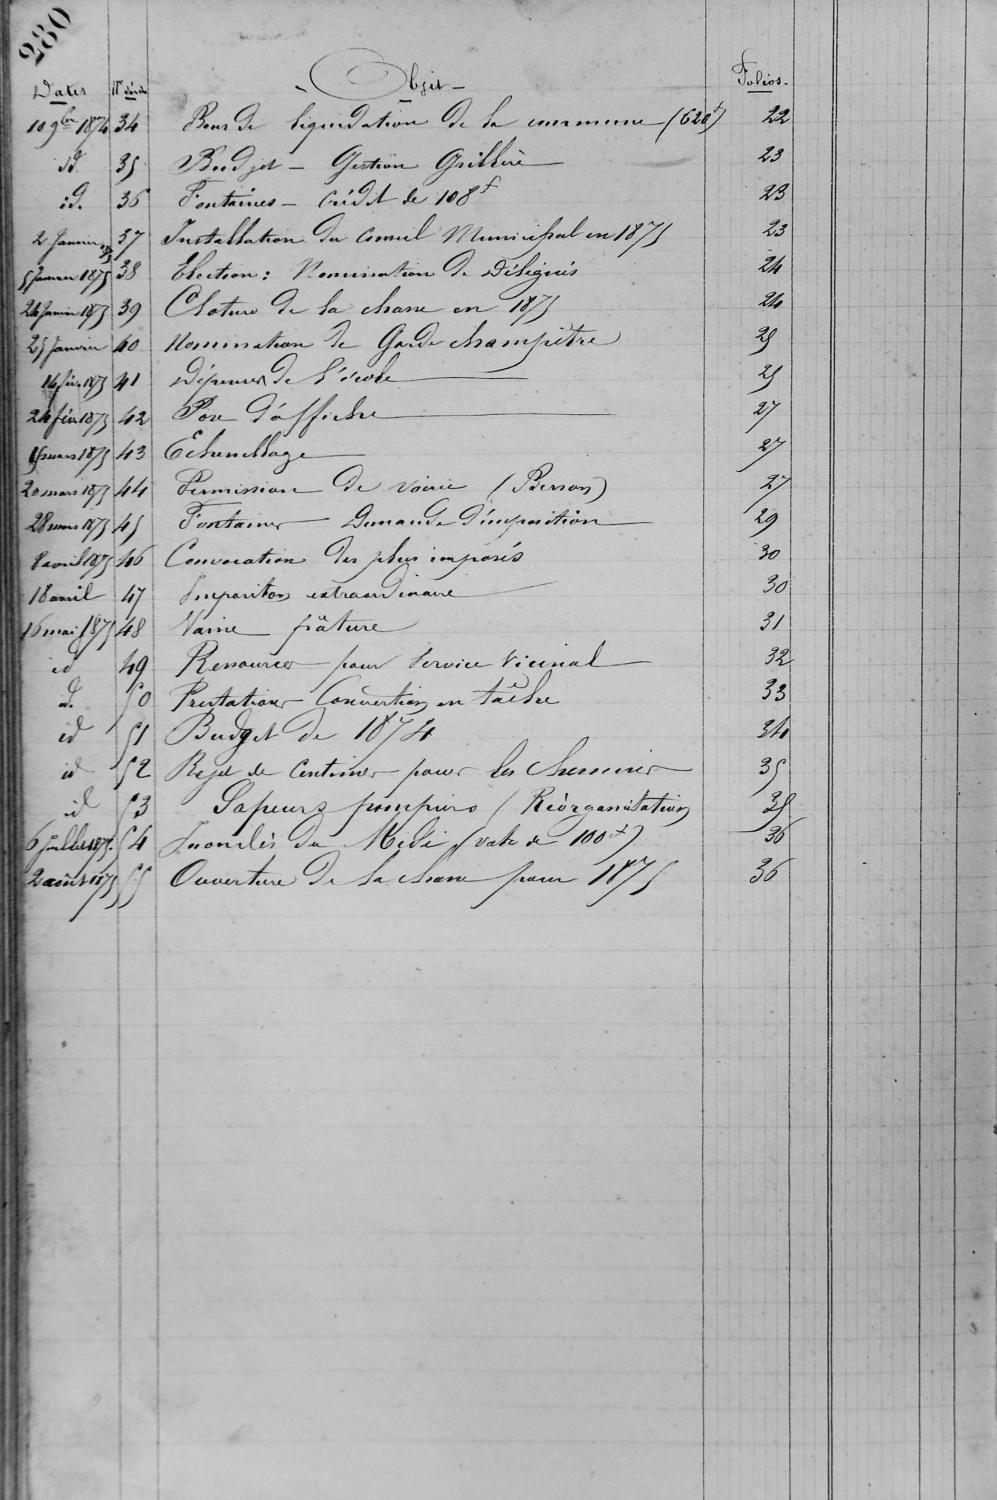 280
Dates N° d'ordre Objet Folios
10 9bre 1874 34 Bons de liquidation de la commune (620f) 22
id. 35 Budget - Gestion 23
id. 36 Fontaines - Crédit de 108f 23
2 Janvier 37 Installation du Conseil Municipal en 1875 23
5 Janvier 1875 38 Election : Nomination de Délégués 24
24 Janvier 1875 39 Cloture de la chasse en 1875 24
25 Janvier 40 Nomination de Garde champêtre 25
14 fév. 1875 41 Dépenses de l'école 25
24 fév 1875 42 Pose d'affiche 27
15 mars 1875 43 Echenillage 27
20 mars 1875 44 Permission de voirie (Berson) 27
28 mars 1875 45 Fontaines - Demande d'imposition 29
8 avril 1875 46 Convocation des plus imposés 30
18 avril 47 Imposition extraordinaire 30
16 mai 1875 48 Vaine pâture 31
id 49 Ressources pour Service Vicinal 32
d. 50 Prestations - Conversion en tâche 33
id 51 Budget de 1874 34
id 52 Rejet de Centimes pour les chemins 35
id 53 Sapeurs pompiers (Réorganisation) 35
6 Juillet 1875 54 Inondés du Midi (vote de 100f) 36
2 août 1875 55 Ouverture de la chasse pour 1875 36